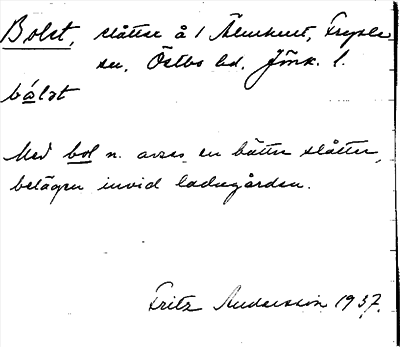 Bolet, slåtter å 1 Älmhult, Tryde
sn. Östbo hd. Jönk. l.
bå̀lət
Med bol n. avses en bättre slåtter,
belägen invid ladugården.
Fritz Andersson 1937.